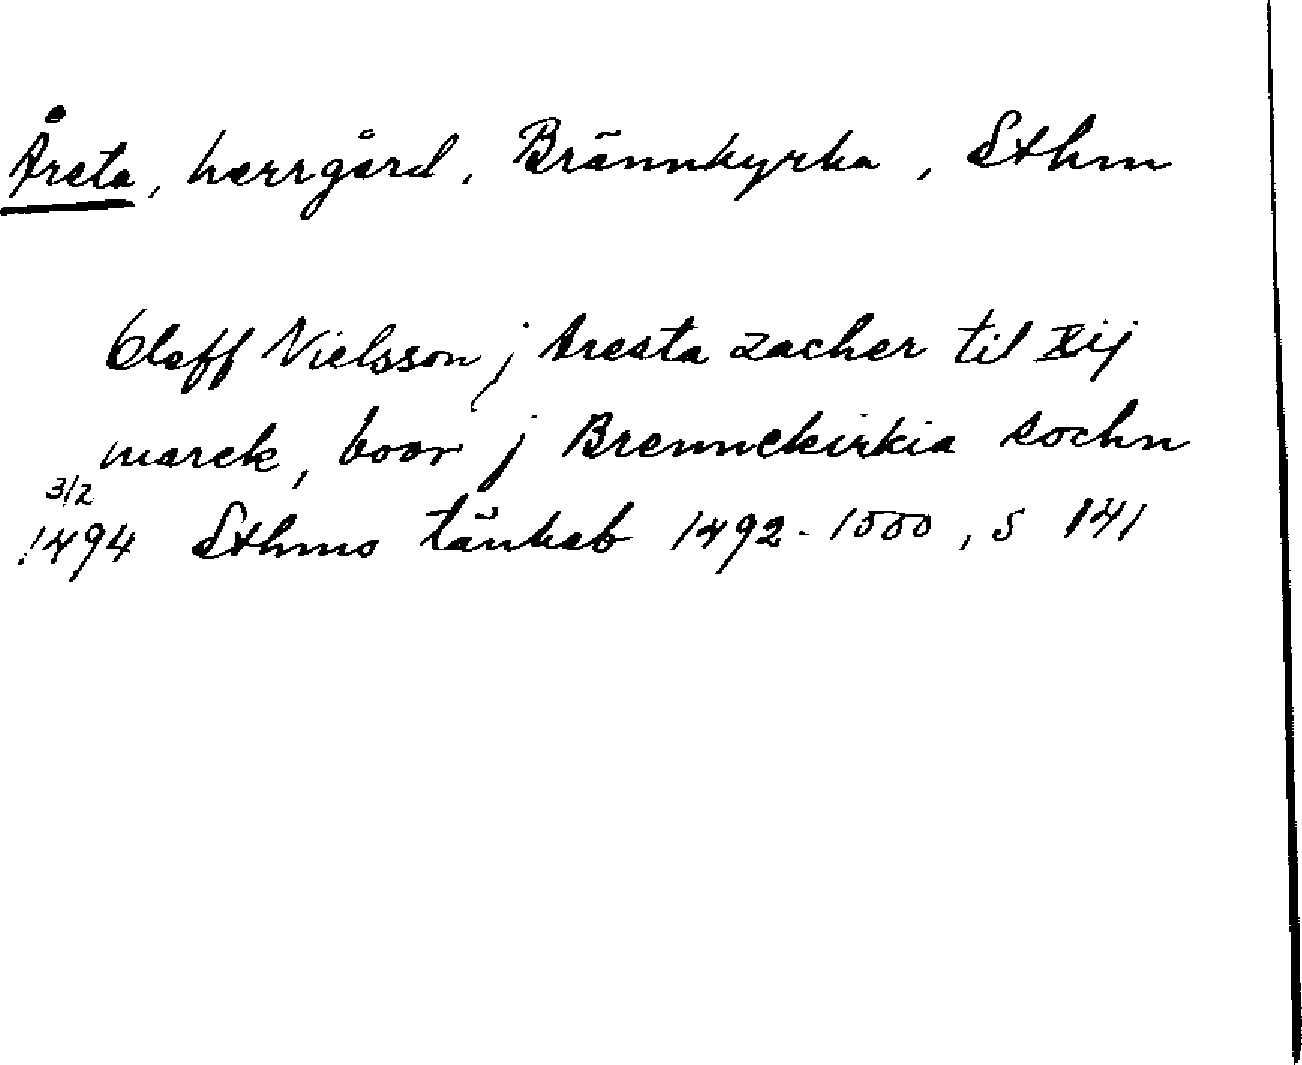 Årsta, herrgård, Brännkyrka, Sthm
Olaff Nielsson j Aresta zacher til xij
marck, boor j Brennekirkia sochn
3/2
1494 Sthms tänkeb 1492-1500, s 141